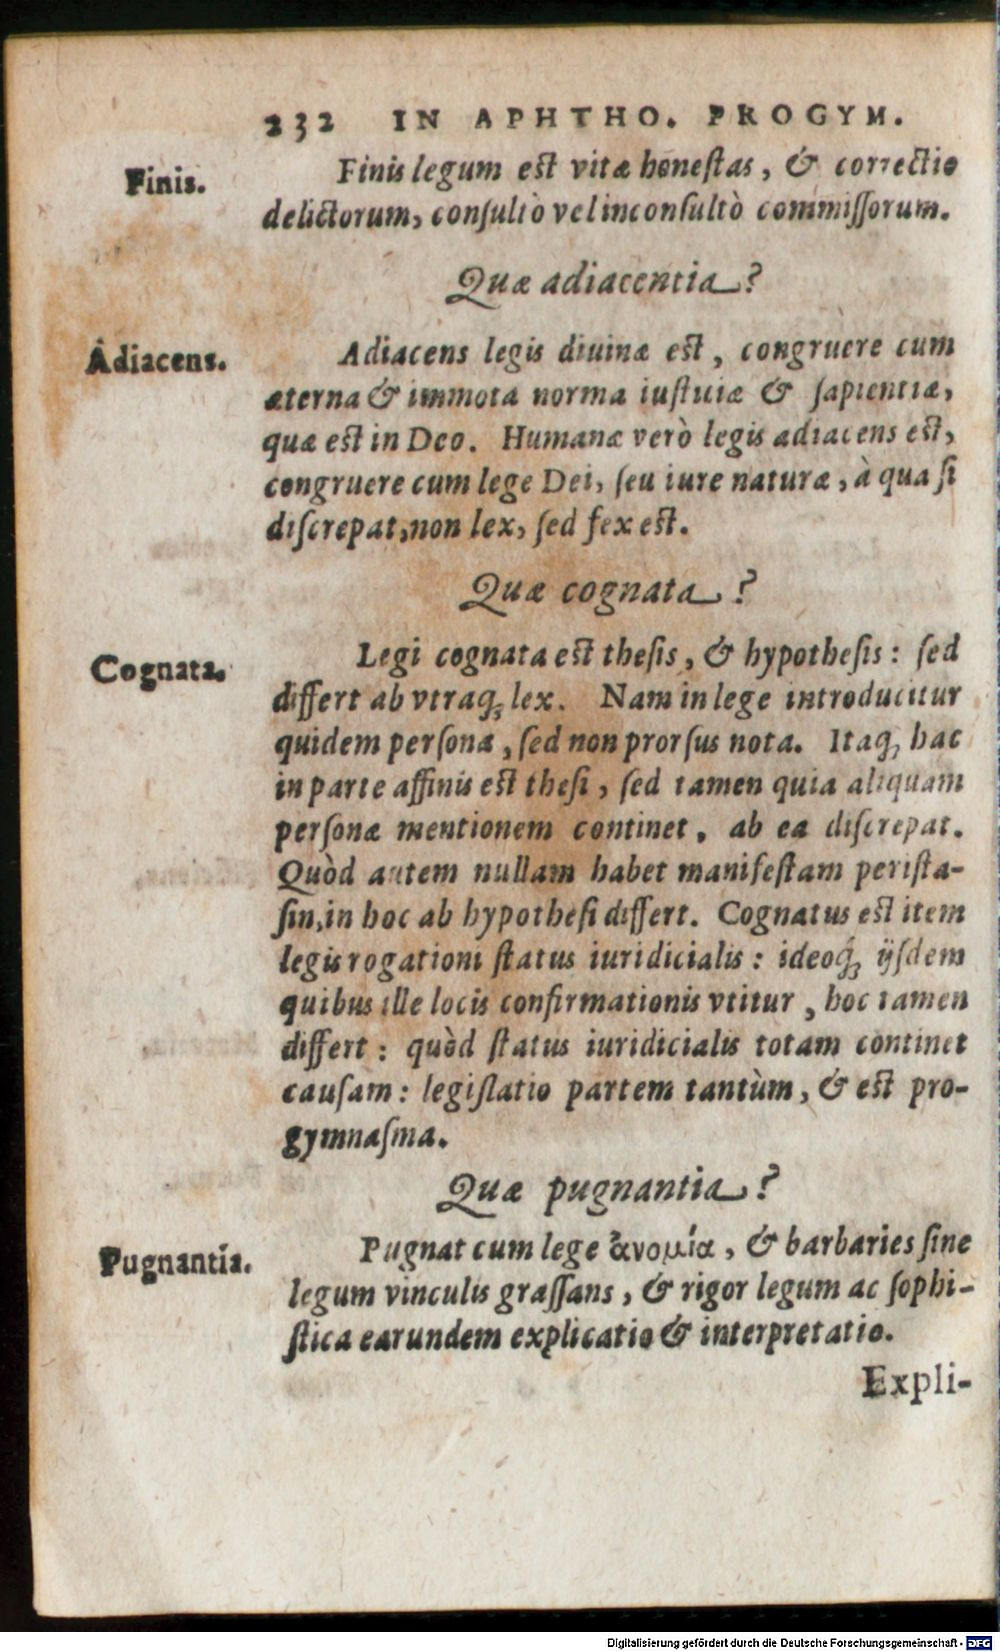 232 IN APHTHO. PROGYM.
Finis.
Finis legum est vitæ honestas, & correctio
delictorum, consultò vel inconsultò commissorum.
Quæ adiacentia?
Adiacens.
Adiacens legis diuinæ est, congruere cum
æterna & immota norma iustitiæ & sapientiæ,
quæ est in Deo. Humanæ verò legis adiacens est,
congruere cum lege Dei, seu iure naturæ, à qua si
discrepat, non lex, sed fex est.
Quæ cognata?
Cognata.
Legi cognata est thesis, & hypothesis: sed
differt ab vtraq; lex. Nam in lege introducitur
quidem persona, sed non prorsus nota. Itaq; hac
in parte affinis est thesi, sed tamen quia aliquam
personæ mentionem continet, ab ea discrepat.
Quòd autem nullam habet manifestam perista-
sin, in hoc ab hypothesi differt. Cognatus est item
legis rogationi status iuridicialis: ideoq́; ijsdem
quibus ille locis confirmationis vtitur, hoc tamen
differt: quòd status iuridicialis totam continet
causam: legislatio partem tantùm, & est pro-
gymnasma.
Quæ pugnantia?
Pugnantia.
Pugnat cum lege ἀνομία, & barbaries sine
legum vinculis grassans, & rigor legum ac sophi-
stica earundem explicatio & interpretatio.
Expli-
Digitalisierung gefördert durch die Deutsche Forschungsgemeinschaft - DFG